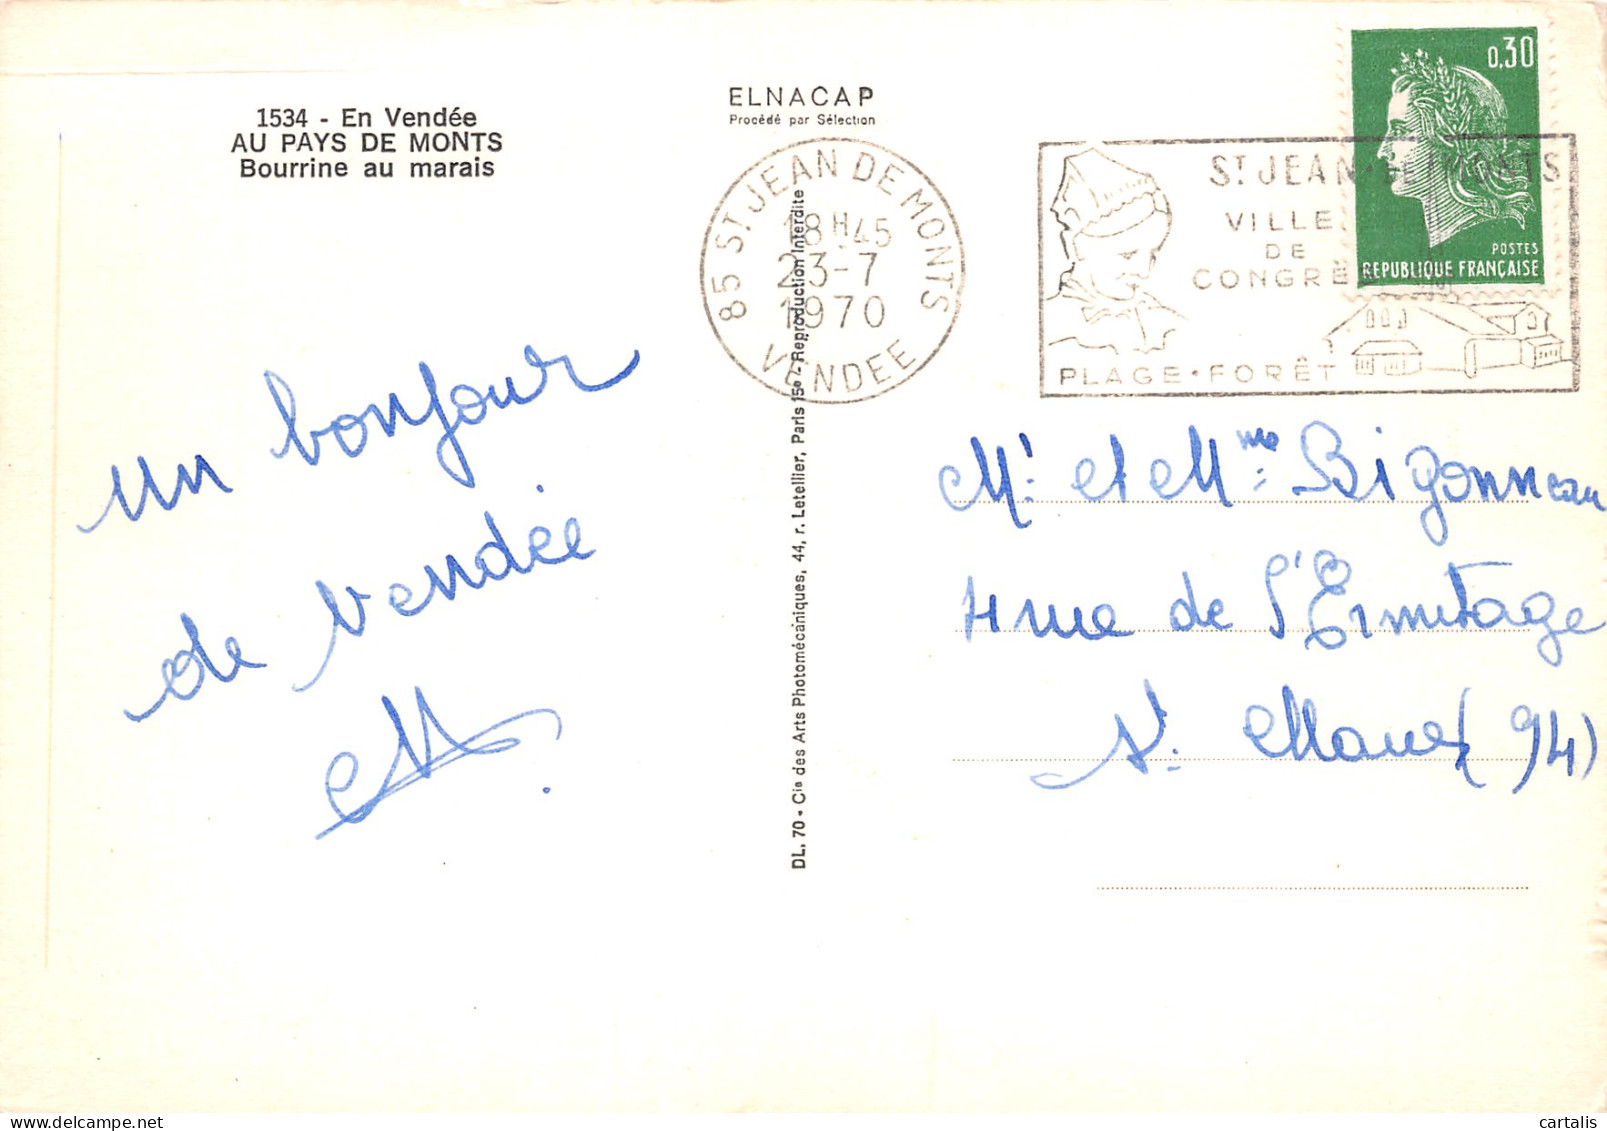 1534 - En Vendée
AU PAYS DE MONTS
Bourrine au marais
ELNACAP
Procédé par Sélection
un bonjour
de Vendée
DL. 70 • Cie des Arts Photomécaniques, 44, r. Letellier, Paris 15e - Reproduction Interdite
85 ST JEAN DE MONTS
18H45
23-7
1970
VENDEE
ST JEAN•DE MONTS
VILLE
DE
CONGRÈ
PLAGE•FORÊT
0,30
POSTES
REPUBLIQUE FRANÇAISE
Mr. et Mme: Bigonneau
4 rue de l'Ermitage
St. Maur (94)
cartalis delcampe.net